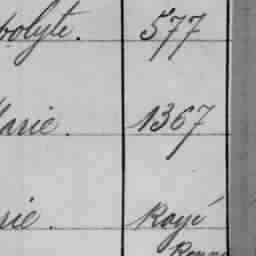 polyte. 577
Marie. 1367
rie. Rayé